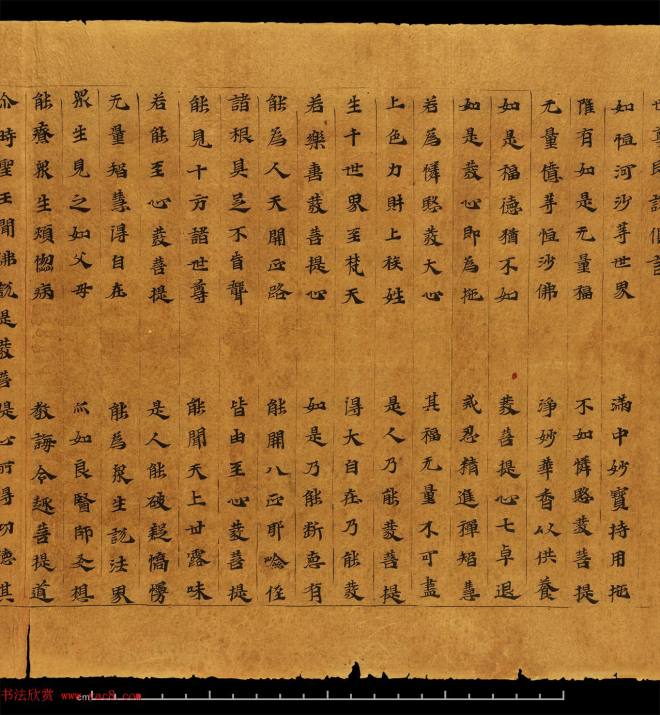 世尊即說偈言
如恒河沙等世界　滿中妙寶持用施
唯有如是无量福　不如憐愍發菩提
无量億等恒沙佛　淨妙華香以供養
如是福德猶不如　發菩提心七卓退
如是發心即為施　戒忍精進禪智慧
若為憐愍發大心　其福无量不可盡
上色力財上族姓　是人乃能發菩提
生十世界至梵天　得大自在乃能發
若樂書發菩提心　如是乃能斷惡有
能為人天開正路　能開八正耶嶮徑
諸根具足不盲聾　皆由至心發菩提
能見十方諸世尊　能聞天上甘露味
若能至心發菩提　是人能破疑憍慢
无量智慧得自在　能為眾生說法界
眾生見之如父母　爪如良醫師友想
能療眾生煩惱病　教誨令趣菩提道
尒時聖王聞佛說是發菩提心所得功德其
书法欣赏
cm